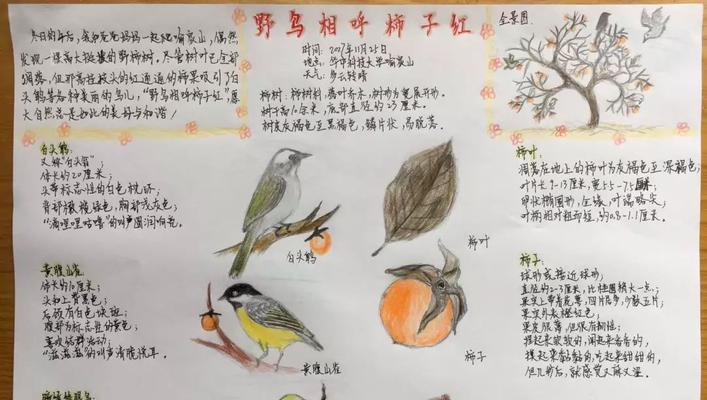 野鸟相呼柿子红
冬日的午后，我和爸爸妈妈一起爬喻家山，偶然
发现一棵高大挺拔的野柿树。尽管树叶已全部
凋落，但那高挂枝头的红通通的柿果吸引了白
头鹎等各种美丽的鸟儿，“野鸟相呼柿子红”，
大自然总是如此的美好与和谐！
时间：2017年11月25日
地点：华中科技大学喻家山
天气：多云转晴
柿树：柿树科，落叶乔木，树形为宽展开形。
树干高10余米，底部直径约23厘米。
树皮灰褐色至黑褐色，鳞片状，易脱落。
全景图：
白头鹎：
又称“白头翁”；
体长约20厘米；
头带标志性的白色枕环；
背部橄榄绿色，胸部浅灰色；
的叫声圆润响亮。
白头鹎
柿叶
柿叶：
凋落在地上的柿叶为灰褐色至深褐色；
叶片长9-13厘米，宽5.5-7.5厘米；
卵状椭圆形，全缘，叶端略尖；
叶柄相对粗而短，约0.8-1.1厘米。
黄腹山雀：
体长约10厘米；
头和上背黑色；
后颈有白色块斑；
腹部为标志性的黄色；
喜欢结群活动；
“滋滋滋”的叫声清脆悦耳。
黄腹山雀
柿子
柿子：
球形或接近球形；
直径约2-3厘米，比桂圆稍大一点；
果实上带有花萼，四片居多，少数五片；
果实外表橙红色；
果皮很薄，但很有韧性；
摸起来软软的，闻起来香香的，
摸起来黏黏的，吃起来甜甜的，
但几秒后，就感觉又麻又涩。